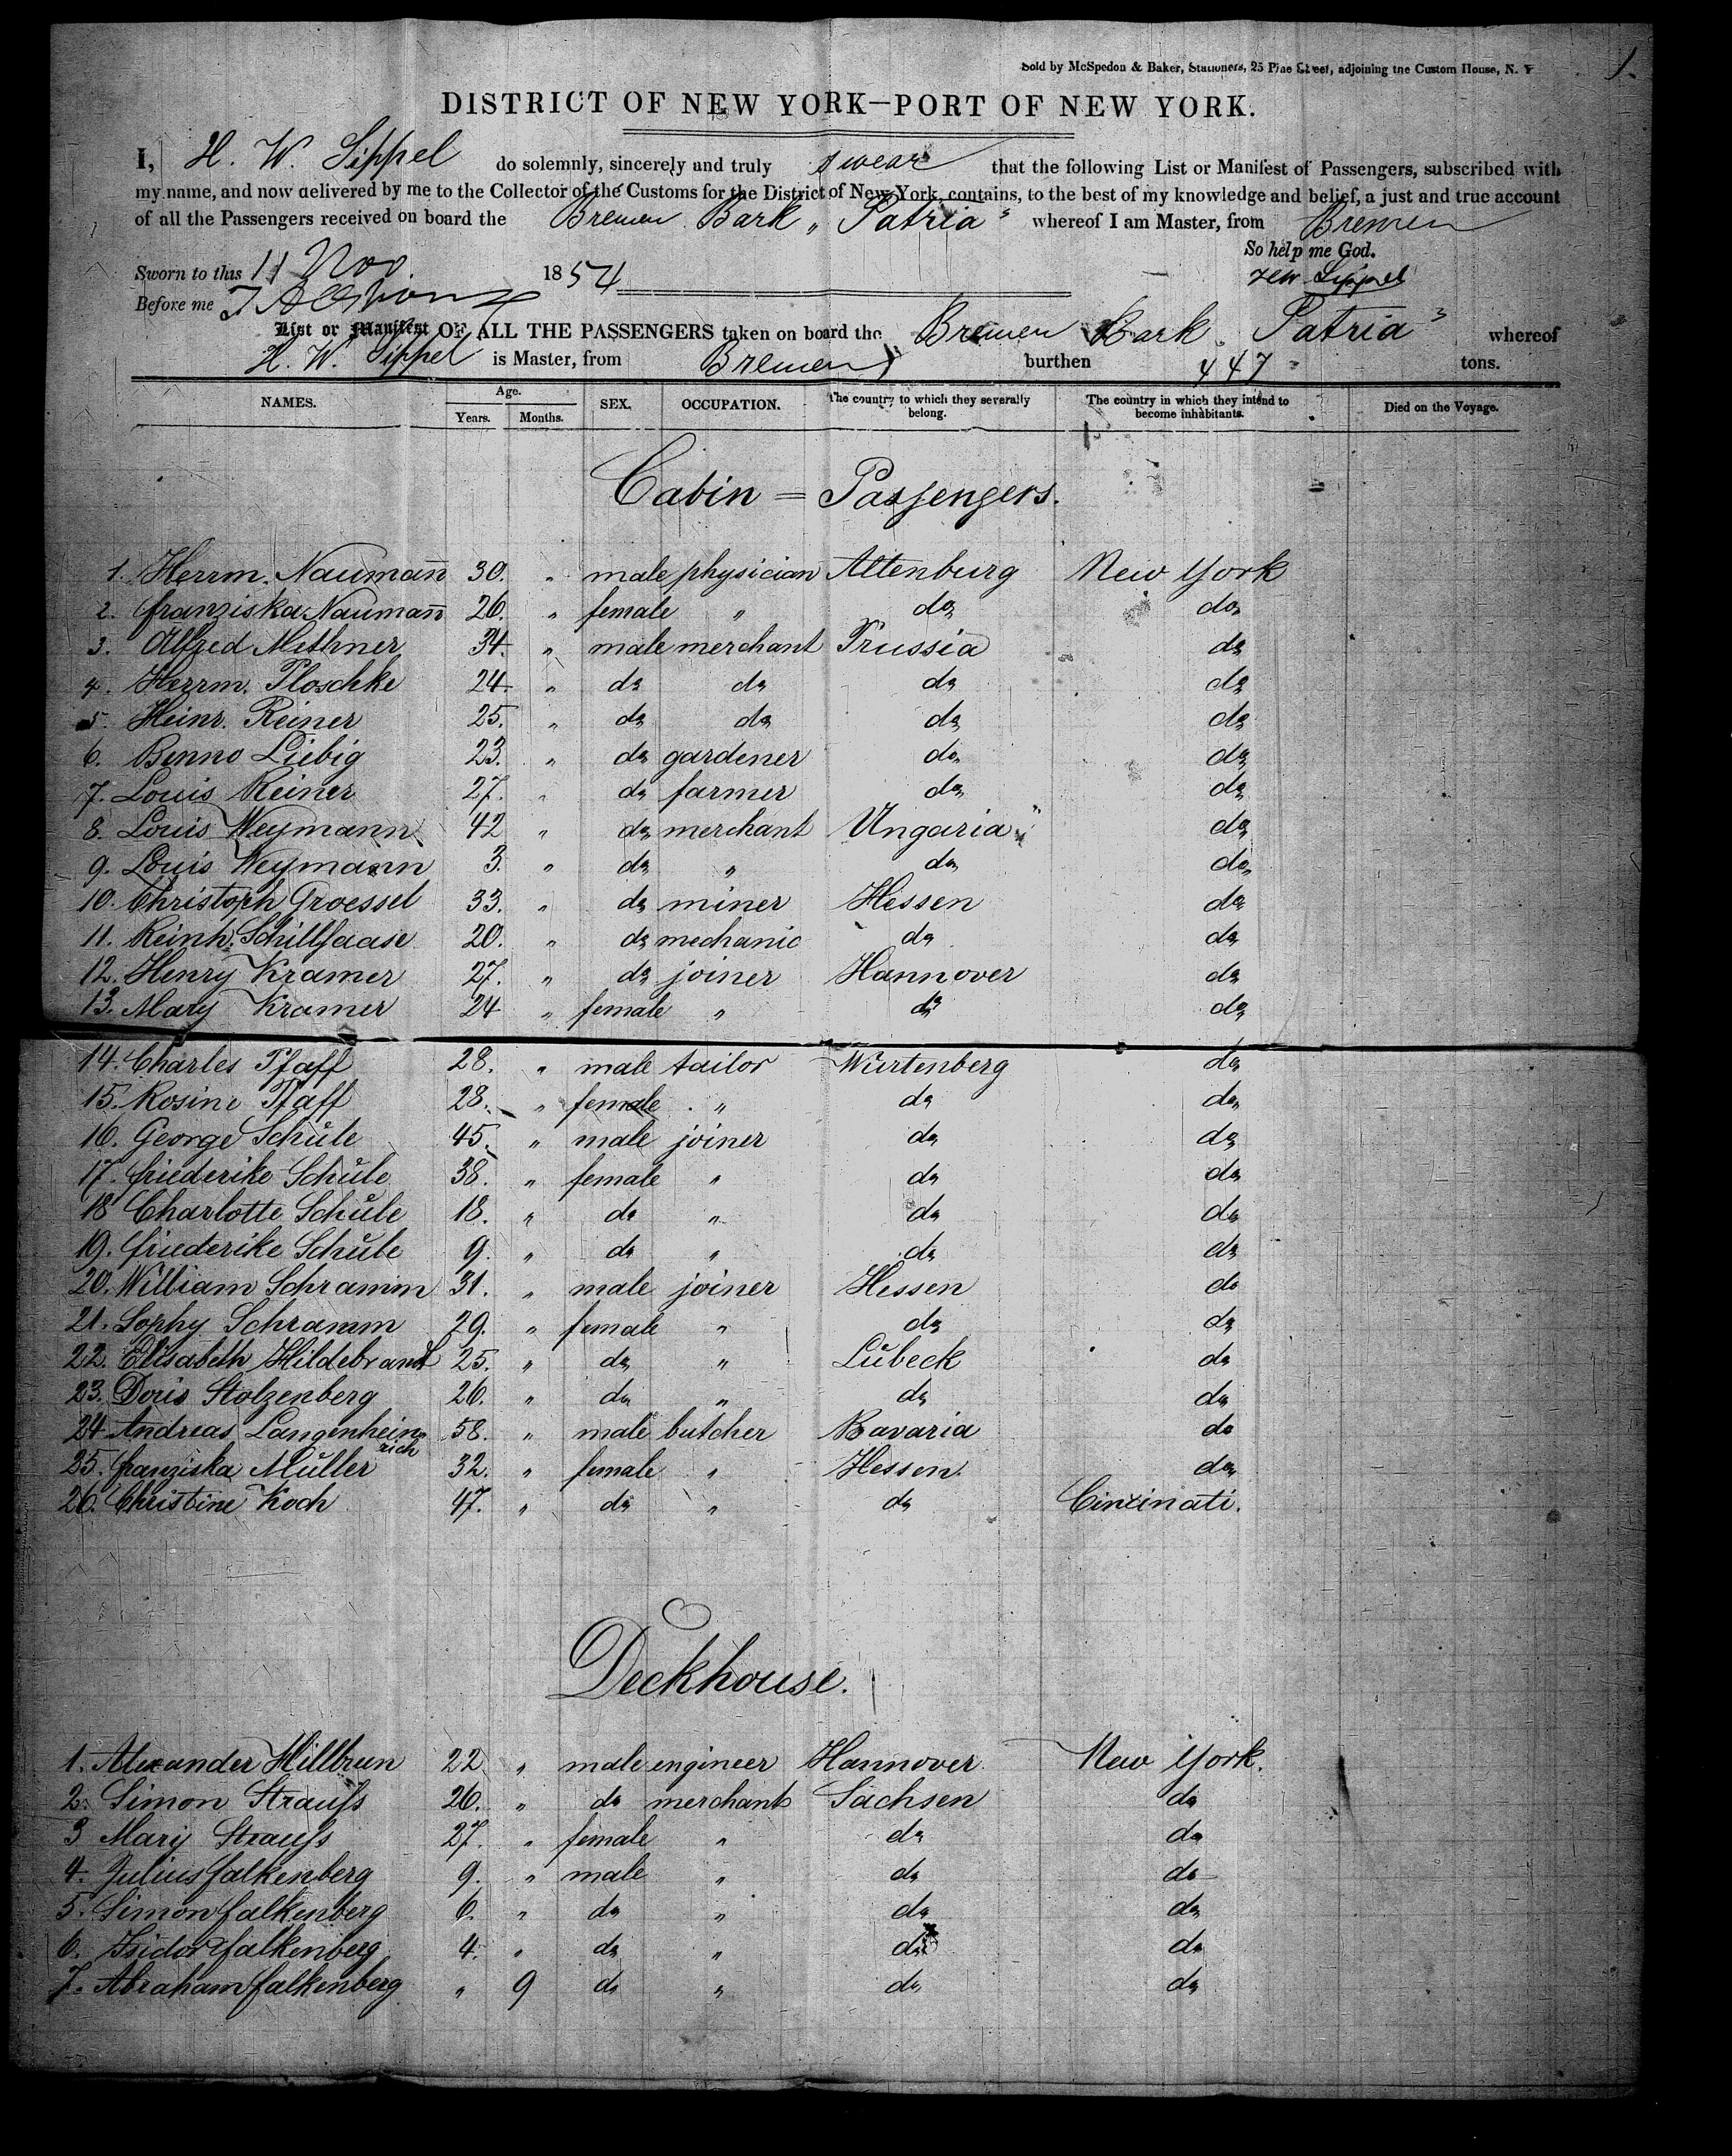 1.
Sold by McSpedon & Baker, Stationers, 25 Pine Street, adjoining the Custom House, N. Y
DISTRICT OF NEW YORK—PORT OF NEW YORK.
I, H. W. Sippel do solemnly, sincerely and truly swear that the following List or Manifest of Passengers, subscribed with
my name, and now delivered by me to the Collector of the Customs for the District of New York, contains, to the best of my knowledge and belief, a just and true account
of all the Passengers received on board the Bremen Bark „ Patria " whereof I am Master, from Bremen
So help me God.
Sworn to this 11 Nov. 1854 HW Sippel
Before me
List or Manifest OF ALL THE PASSENGERS taken on board the Bremen Bark „ Patria " whereof
H. W. Sippel is Master, from Bremen burthen 447 tons.
NAMES. Age. Years. Months. SEX. OCCUPATION. The country to which they severally belong. The country in which they intend to become inhabitants. Died on the Voyage.
Cabin = Passengers.
1. Herrm. Naumañ 30. " male physician Altenburg New York
2. Franziska Naumañ 26. " female " do do
3. Alfred Methner 34. " male merchant Prussia do
4. Herrm. Ploschke 24. " do do do do
5. Heinr. Reiner 25. " do do do do
6. Benno Liebig 23. " do gardener do do
7. Louis Reiner 27. " do farmer do do
8. Louis Weymann 42 " do merchant Ungaria do
9. Louis Weymann 3. " do " do do
10. Christoph Groessel 33. " do miner Hessen do
11. Reinh. 20. " do mechanic do do
12. Henry Kramer 27. " do joiner Hannover do
13. Mary Kramer 24 " female " do do
14. Charles Pfaff 28. " male tailor Würtenberg do
15. Rosine Pfaff 28. " female " do do
16. George Schüle 45. " male joiner do do
17. Friederike Schüle 38. " female " do do
18 Charlotte Schüle 18. " do " do do
19. Friederike Schüle 9. " do " do do
20. William Schramm 31. " male joiner Hessen do
21. Sophy Schramm 29. " female " do do
22. Elisabeth Hildebrandt 25. " do " Lübeck do
23. Doris Stolzenberg 26. " do " do do
24 Andreas Langenheinrich 58. " male butcher Bavaria do
25. Franziska Müller 32. " female " Hessen. do
26. Christine Koch 47. " do " do Cincinati.
Deckhouse.
1. Alexander Hillbrun 22 " male engineer Hannover. New York.
2. Simon Strauss 26. " do merchant Sachsen do
3 Mary Strauss 27. " female " do do
4. Julius Falkenberg 9. " male " do do
5. Simon Falkenberg 6. " do " do do
6. Isidor Falkenberg 4. " do " do do
7. Abraham Falkenberg " 9 do " do do